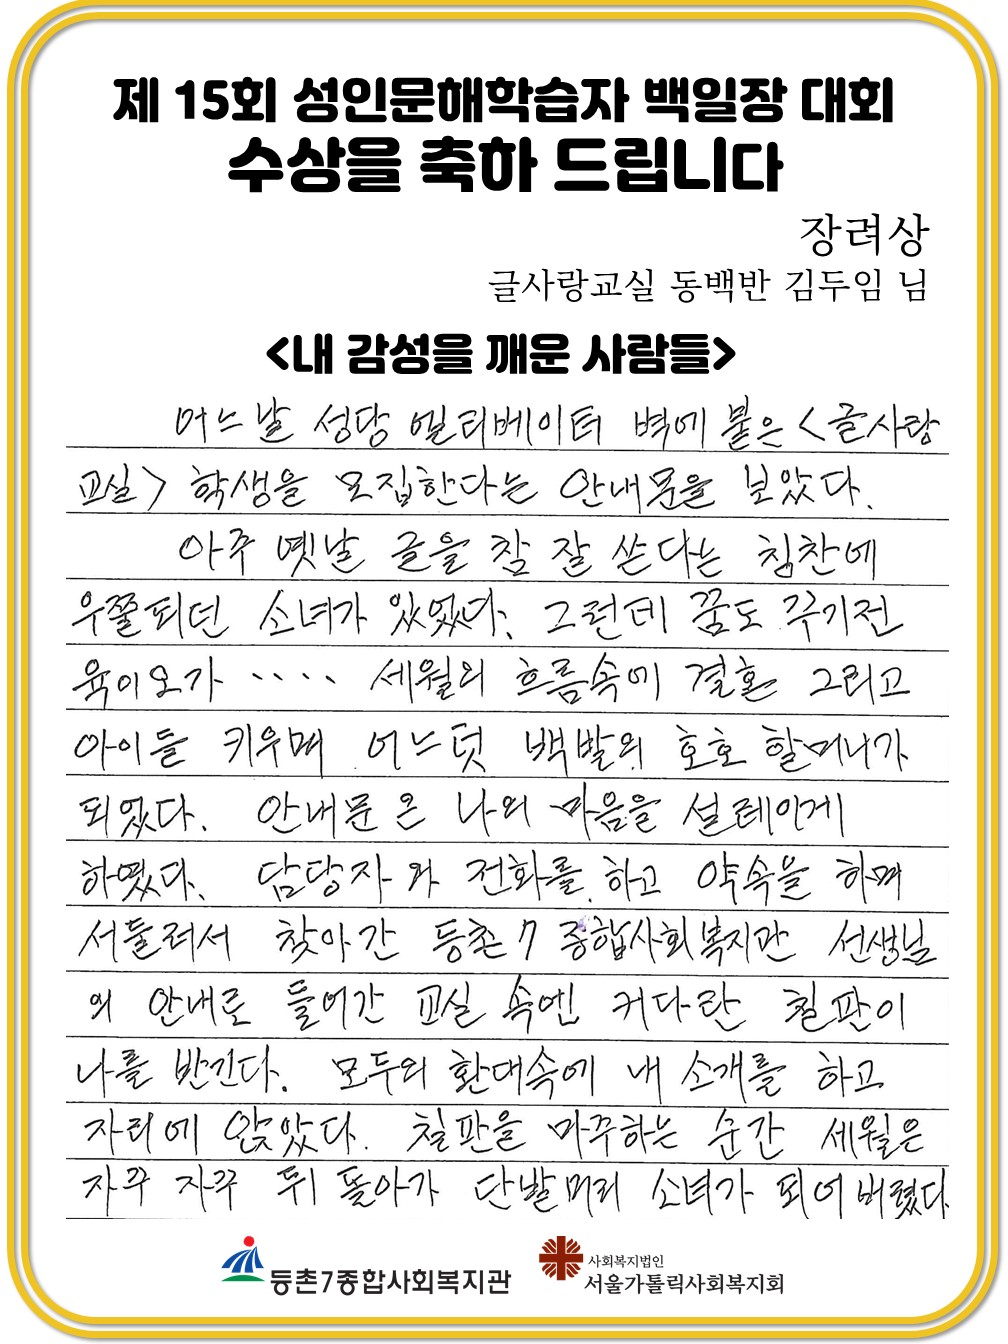 제 15회 성인문해학습자 백일장 대회
수상을 축하 드립니다
장려상
글사랑교실 동백반 김두임 님
<내 감성을 깨운 사람들>
어느날 성당 엘리베이터 벽에 붙은 <글사랑
교실> 학생을 모집한다는 안내문을 보았다.
아주 옛날 글을 참 잘 쓴다는 칭찬에
우쭐되던 소녀가 있었다. 그런데 꿈도 꾸기전
육이오가 ···· 세월의 흐름속에 결혼 그리고
아이들 키우며 어느덧 백발의 호호 할머니가
되었다. 안내문은 나의 마음을 설레이게
하였다. 담당자와 전화를 하고 약속을 하며
서둘러서 찾아간 등촌7종합사회복지관 선생님
의 안내로 들어간 교실 속엔 커다란 칠판이
나를 반긴다. 모두의 환대속에 내 소개를 하고
자리에 앉았다. 칠판을 마주하는 순간 세월은
자꾸 자꾸 뒤 돌아가 단발머리 소녀가 되어 버렸다
등촌7종합사회복지관
사회복지법인
서울가톨릭사회복지회